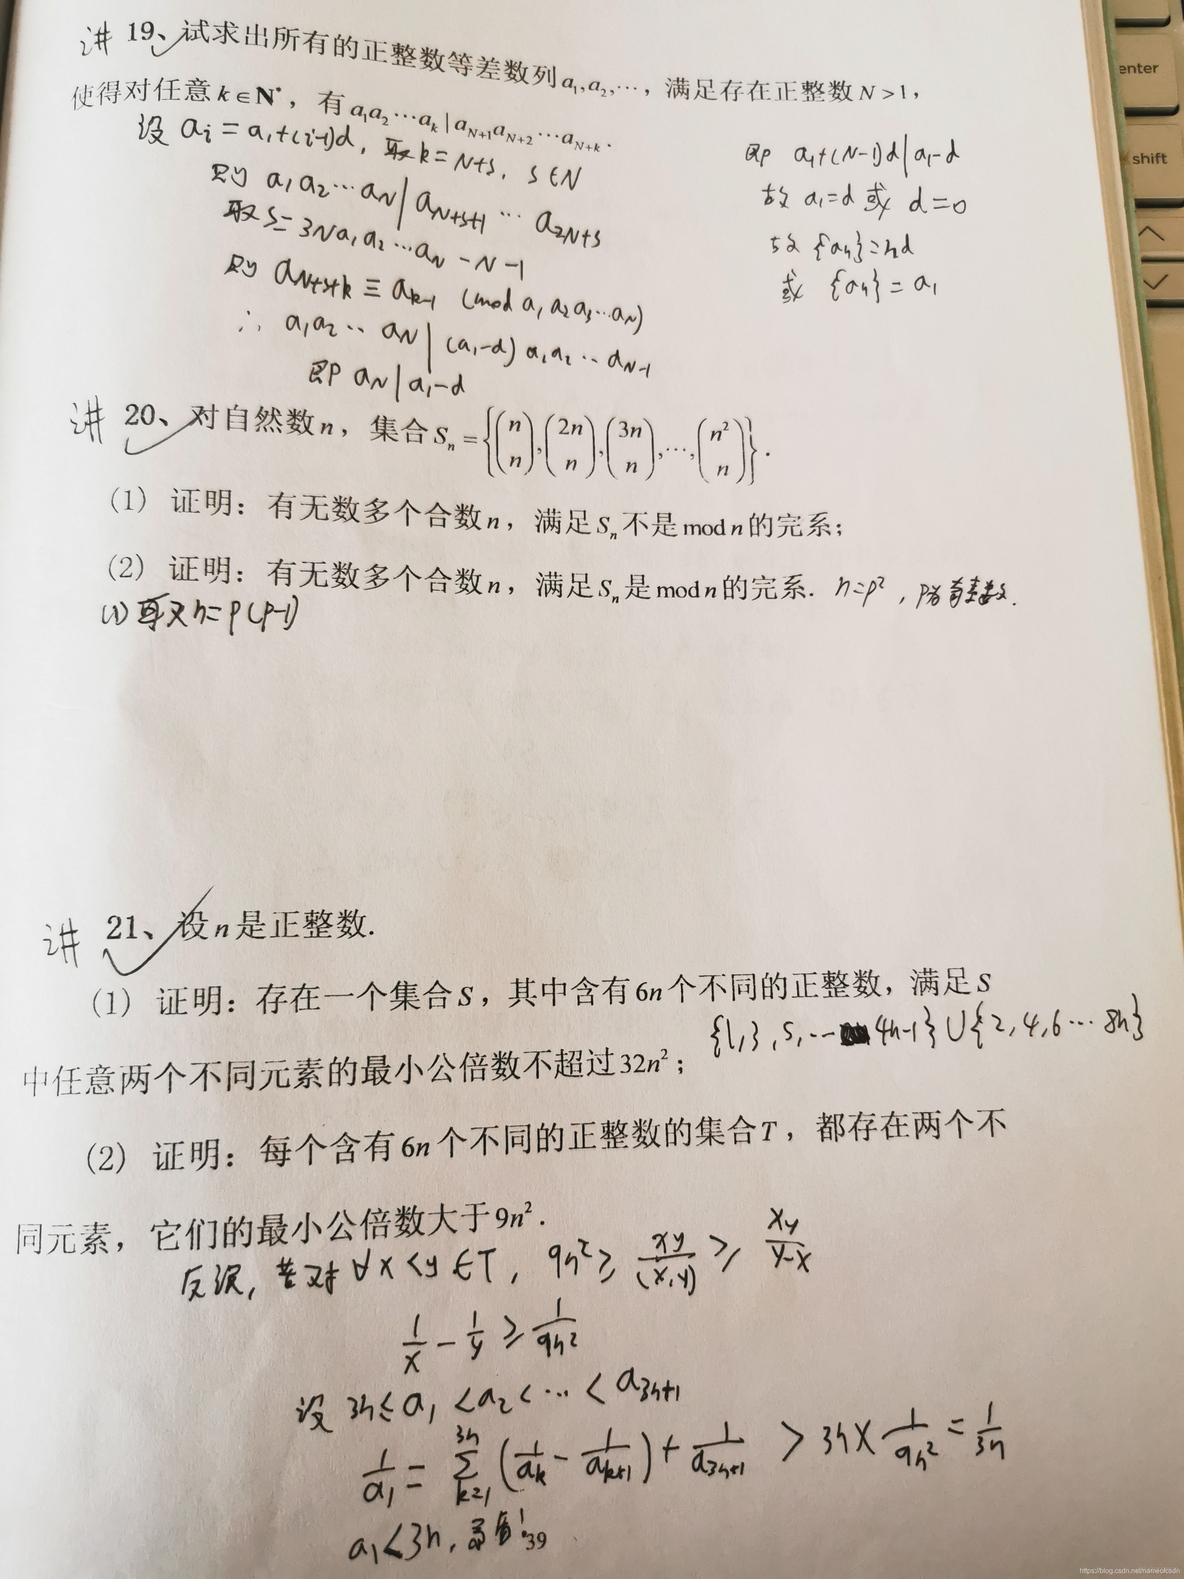 讲 19、试求出所有的正整数等差数列 a₁,a₂,⋯，满足存在正整数 N>1，
使得对任意 k∈N*，有 a₁a₂⋯aₖ | a_{N+1}a_{N+2}⋯a_{N+k}.
设 aᵢ = a₁+(i-1)d, 取 k = N+s, s∈N
则 a₁a₂⋯a_N | a_{N+s+1}⋯a_{2N+s}
取 s = 3Na₁a₂⋯a_N -N-1
则 a_{N+s+k} ≡ a_{k-1} (mod a₁a₂a₃⋯a_N)
∴ a₁a₂⋯a_N | (a₁-d)a₁a₂⋯a_{N-1}
即 a_N | a₁-d
即 a₁+(N-1)d | a₁-d
故 a₁=d 或 d=0
故 {aₙ}=nd
或 {aₙ}=a₁
讲 20、对自然数 n，集合 Sₙ = {(n n),(2n n),(3n n),⋯,(n² n)}.
(1) 证明：有无数多个合数 n，满足 Sₙ 不是 mod n 的完系；
(2) 证明：有无数多个合数 n，满足 Sₙ 是 mod n 的完系. n=p²，p为奇素数.
(1) 取 n=p(p-1)
讲 21、设 n 是正整数.
(1) 证明：存在一个集合 S，其中含有 6n 个不同的正整数，满足 S
{1,3,5,⋯ 4n-1}∪{2,4,6⋯8n}
中任意两个不同元素的最小公倍数不超过 32n²；
(2) 证明：每个含有 6n 个不同的正整数的集合 T，都存在两个不
同元素，它们的最小公倍数大于 9n².
反设, 若对 ∀x<y∈T, 9n² ≥ xy/(x,y) ≥ xy/(y-x)
1/x - 1/y ≥ 1/9n²
设 3n≤a₁<a₂<⋯<a_{3n+1}
1/a₁ = ∑_{k=1}^{3n} (1/aₖ - 1/a_{k+1}) + 1/a_{3n+1} > 3n× 1/9n² = 1/3n
a₁<3n, 矛盾!
39
enter
shift
https://blog.csdn.net/nameofcsdn